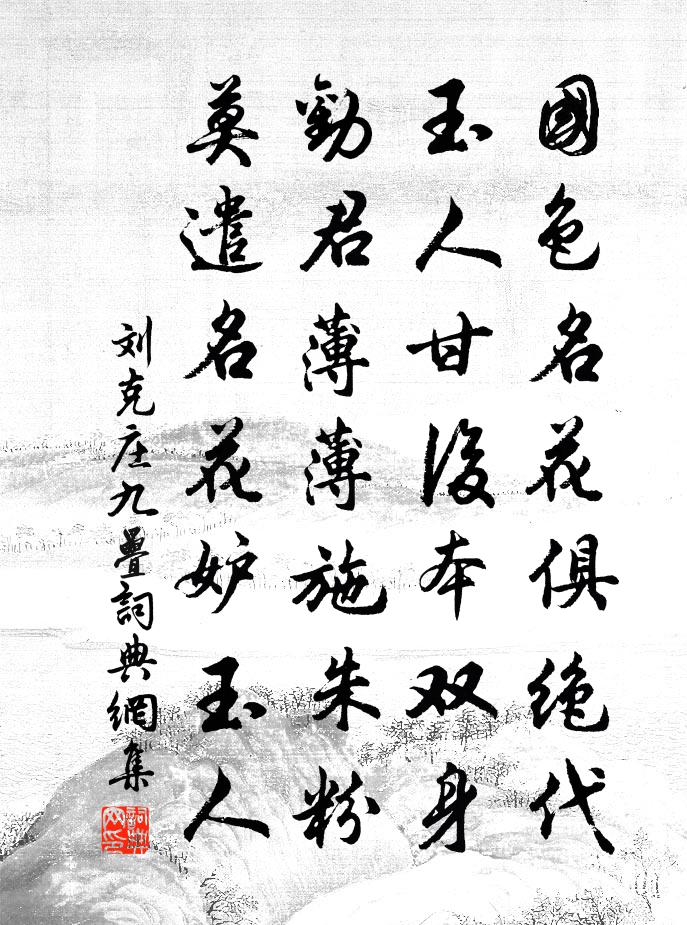 國色名花俱绝代
玉人甘後本双身
勸君薄薄施朱粉
莫遣名花妒玉人
刘克庄九疊詞典網集
詞典网印